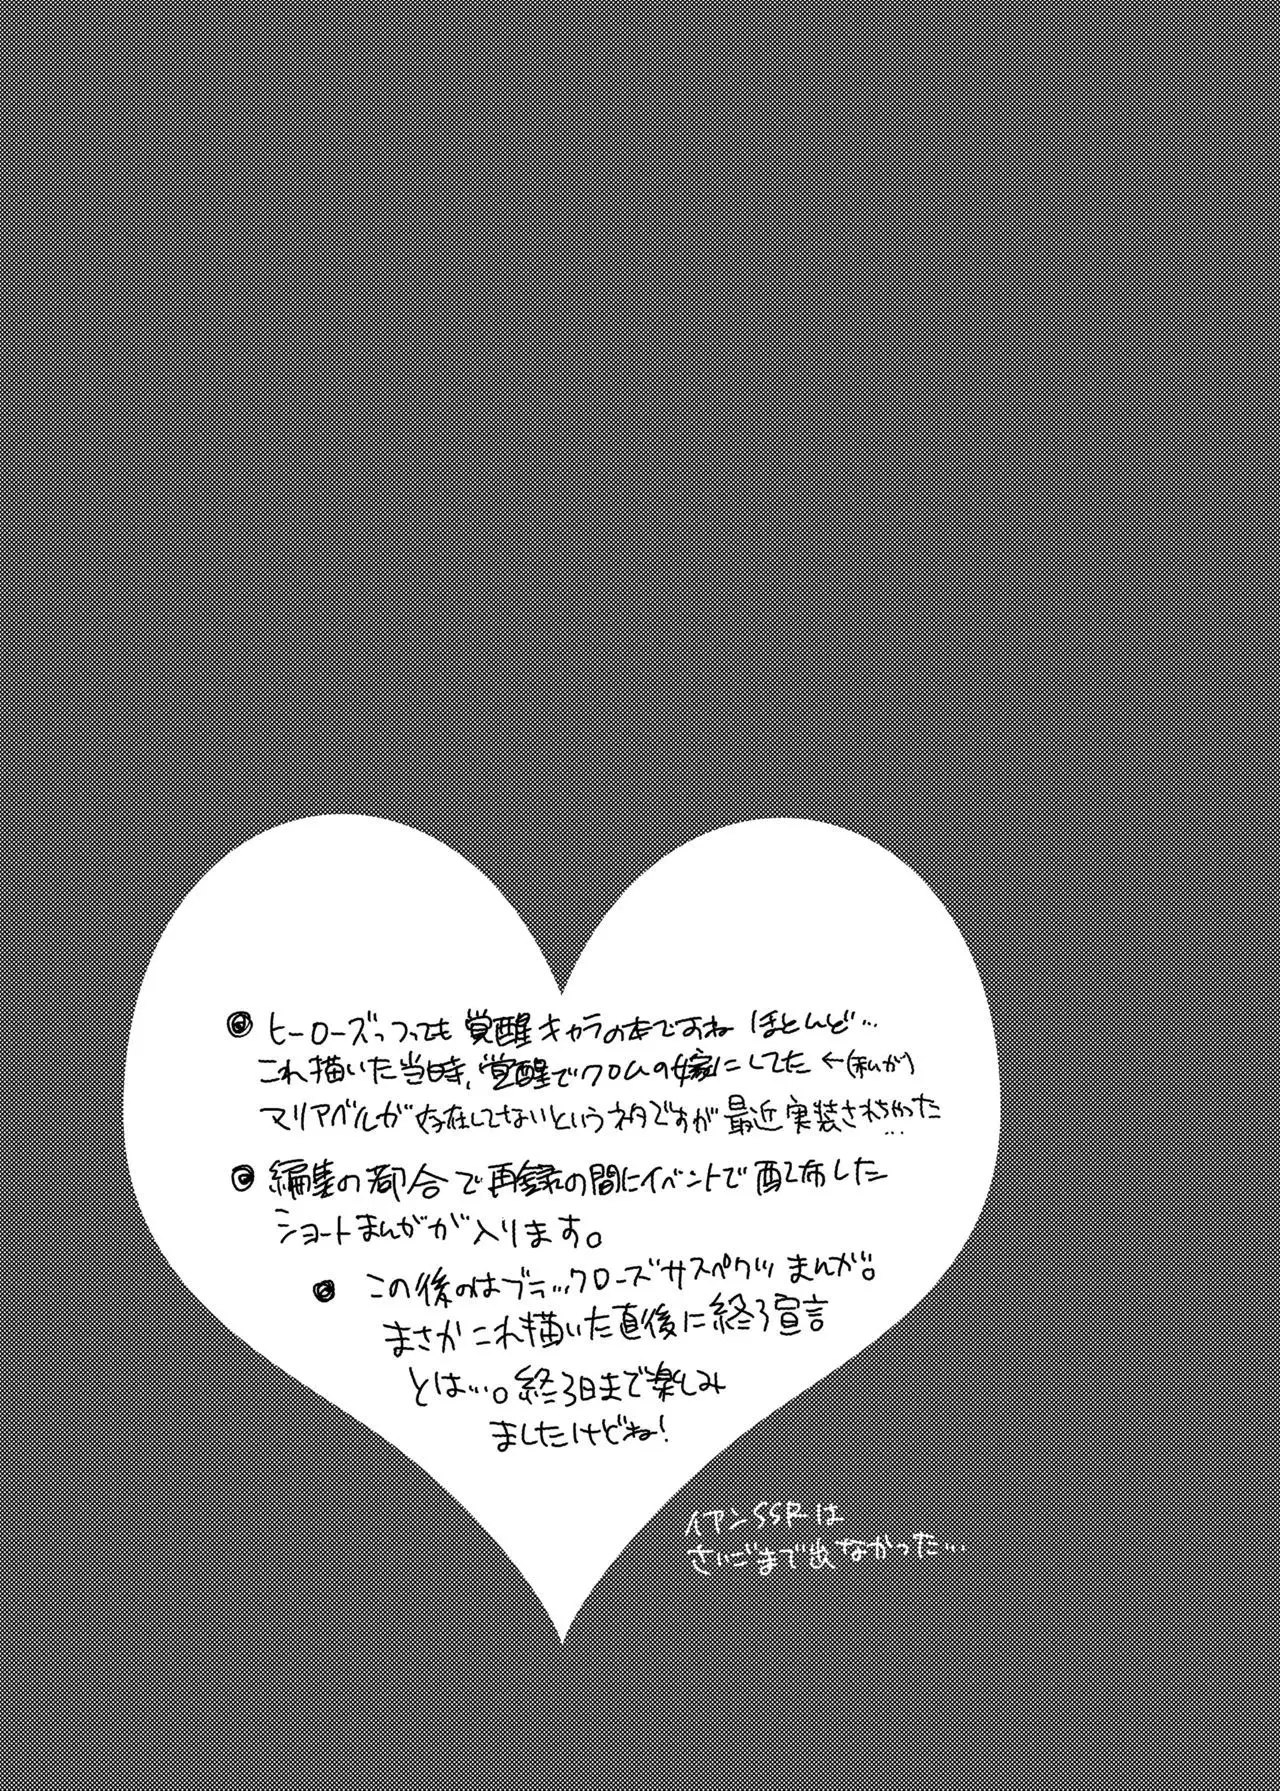 ◎ ヒーローズっつっても覚醒キャラの本ですねほとんど…
これ描いた当時、覚醒でクロムの嫁にしてた←(私が)
マリアベルが存在してないというネタですが最近実装されちゃった…
◎ 編集の都合で再録の間にイベントで配布した
ショートまんがが入ります。
◎ この後のはブラックローズサスペクツまんが。
まさかこれ描いた直後に終了宣言
とは…。終了日まで楽しみ
ましたけどね!
イヤンSSRは
さいごまで出なかった…